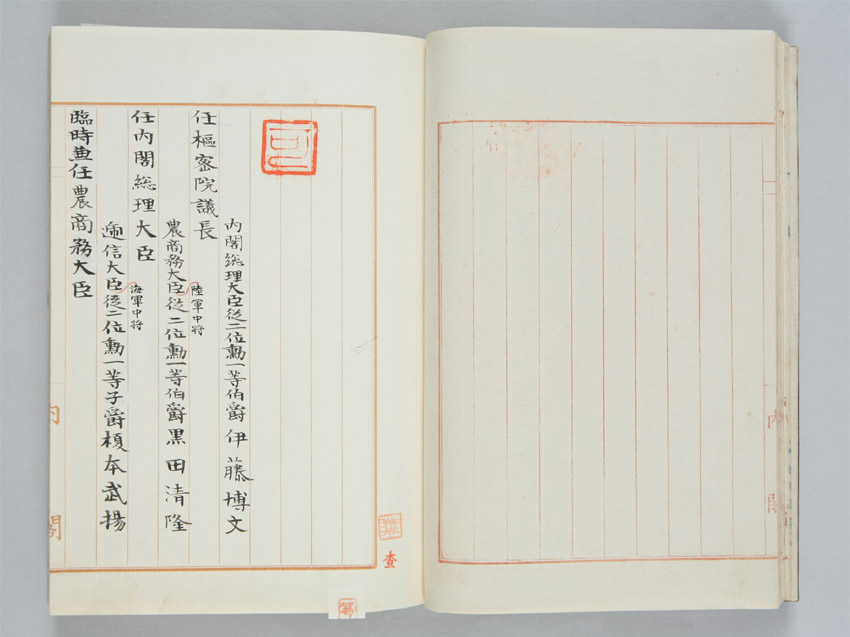 可
内閣総理大臣従二位勳一等伯爵伊藤博文
任枢密院議長
陸軍中将
農商務大臣従二位勳一等伯爵黒田清隆
任内閣総理大臣
海軍中将
逓信大臣従二位勳一等子爵榎本武揚
臨時兼任農商務大臣
内閣
査
内閣